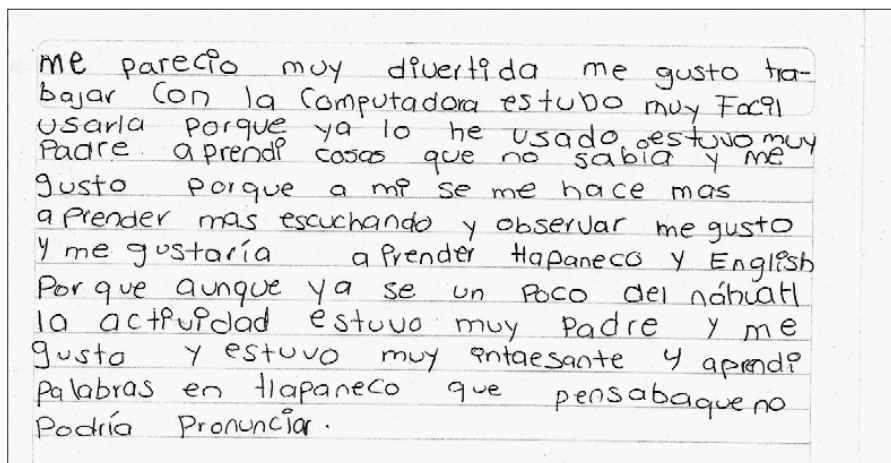 me parecio muy divertida me gusto tra-
bajar con la computadora estubo muy Facil
usarla porque ya lo he usado estuvo muy
Padre. aprendi cosas que no sabia y me
gusto porque a mi se me hace mas
aprender mas escuchando y observar me gusto
y me gustaría aprender tlapaneco y English
Por que aunque ya se un Poco del náhuatl
la actividad estuvo muy Padre y me
gusto y estuvo muy intaesante y aprendi
Palabras en tlapaneco que pensabaque no
Podría Pronunciar.